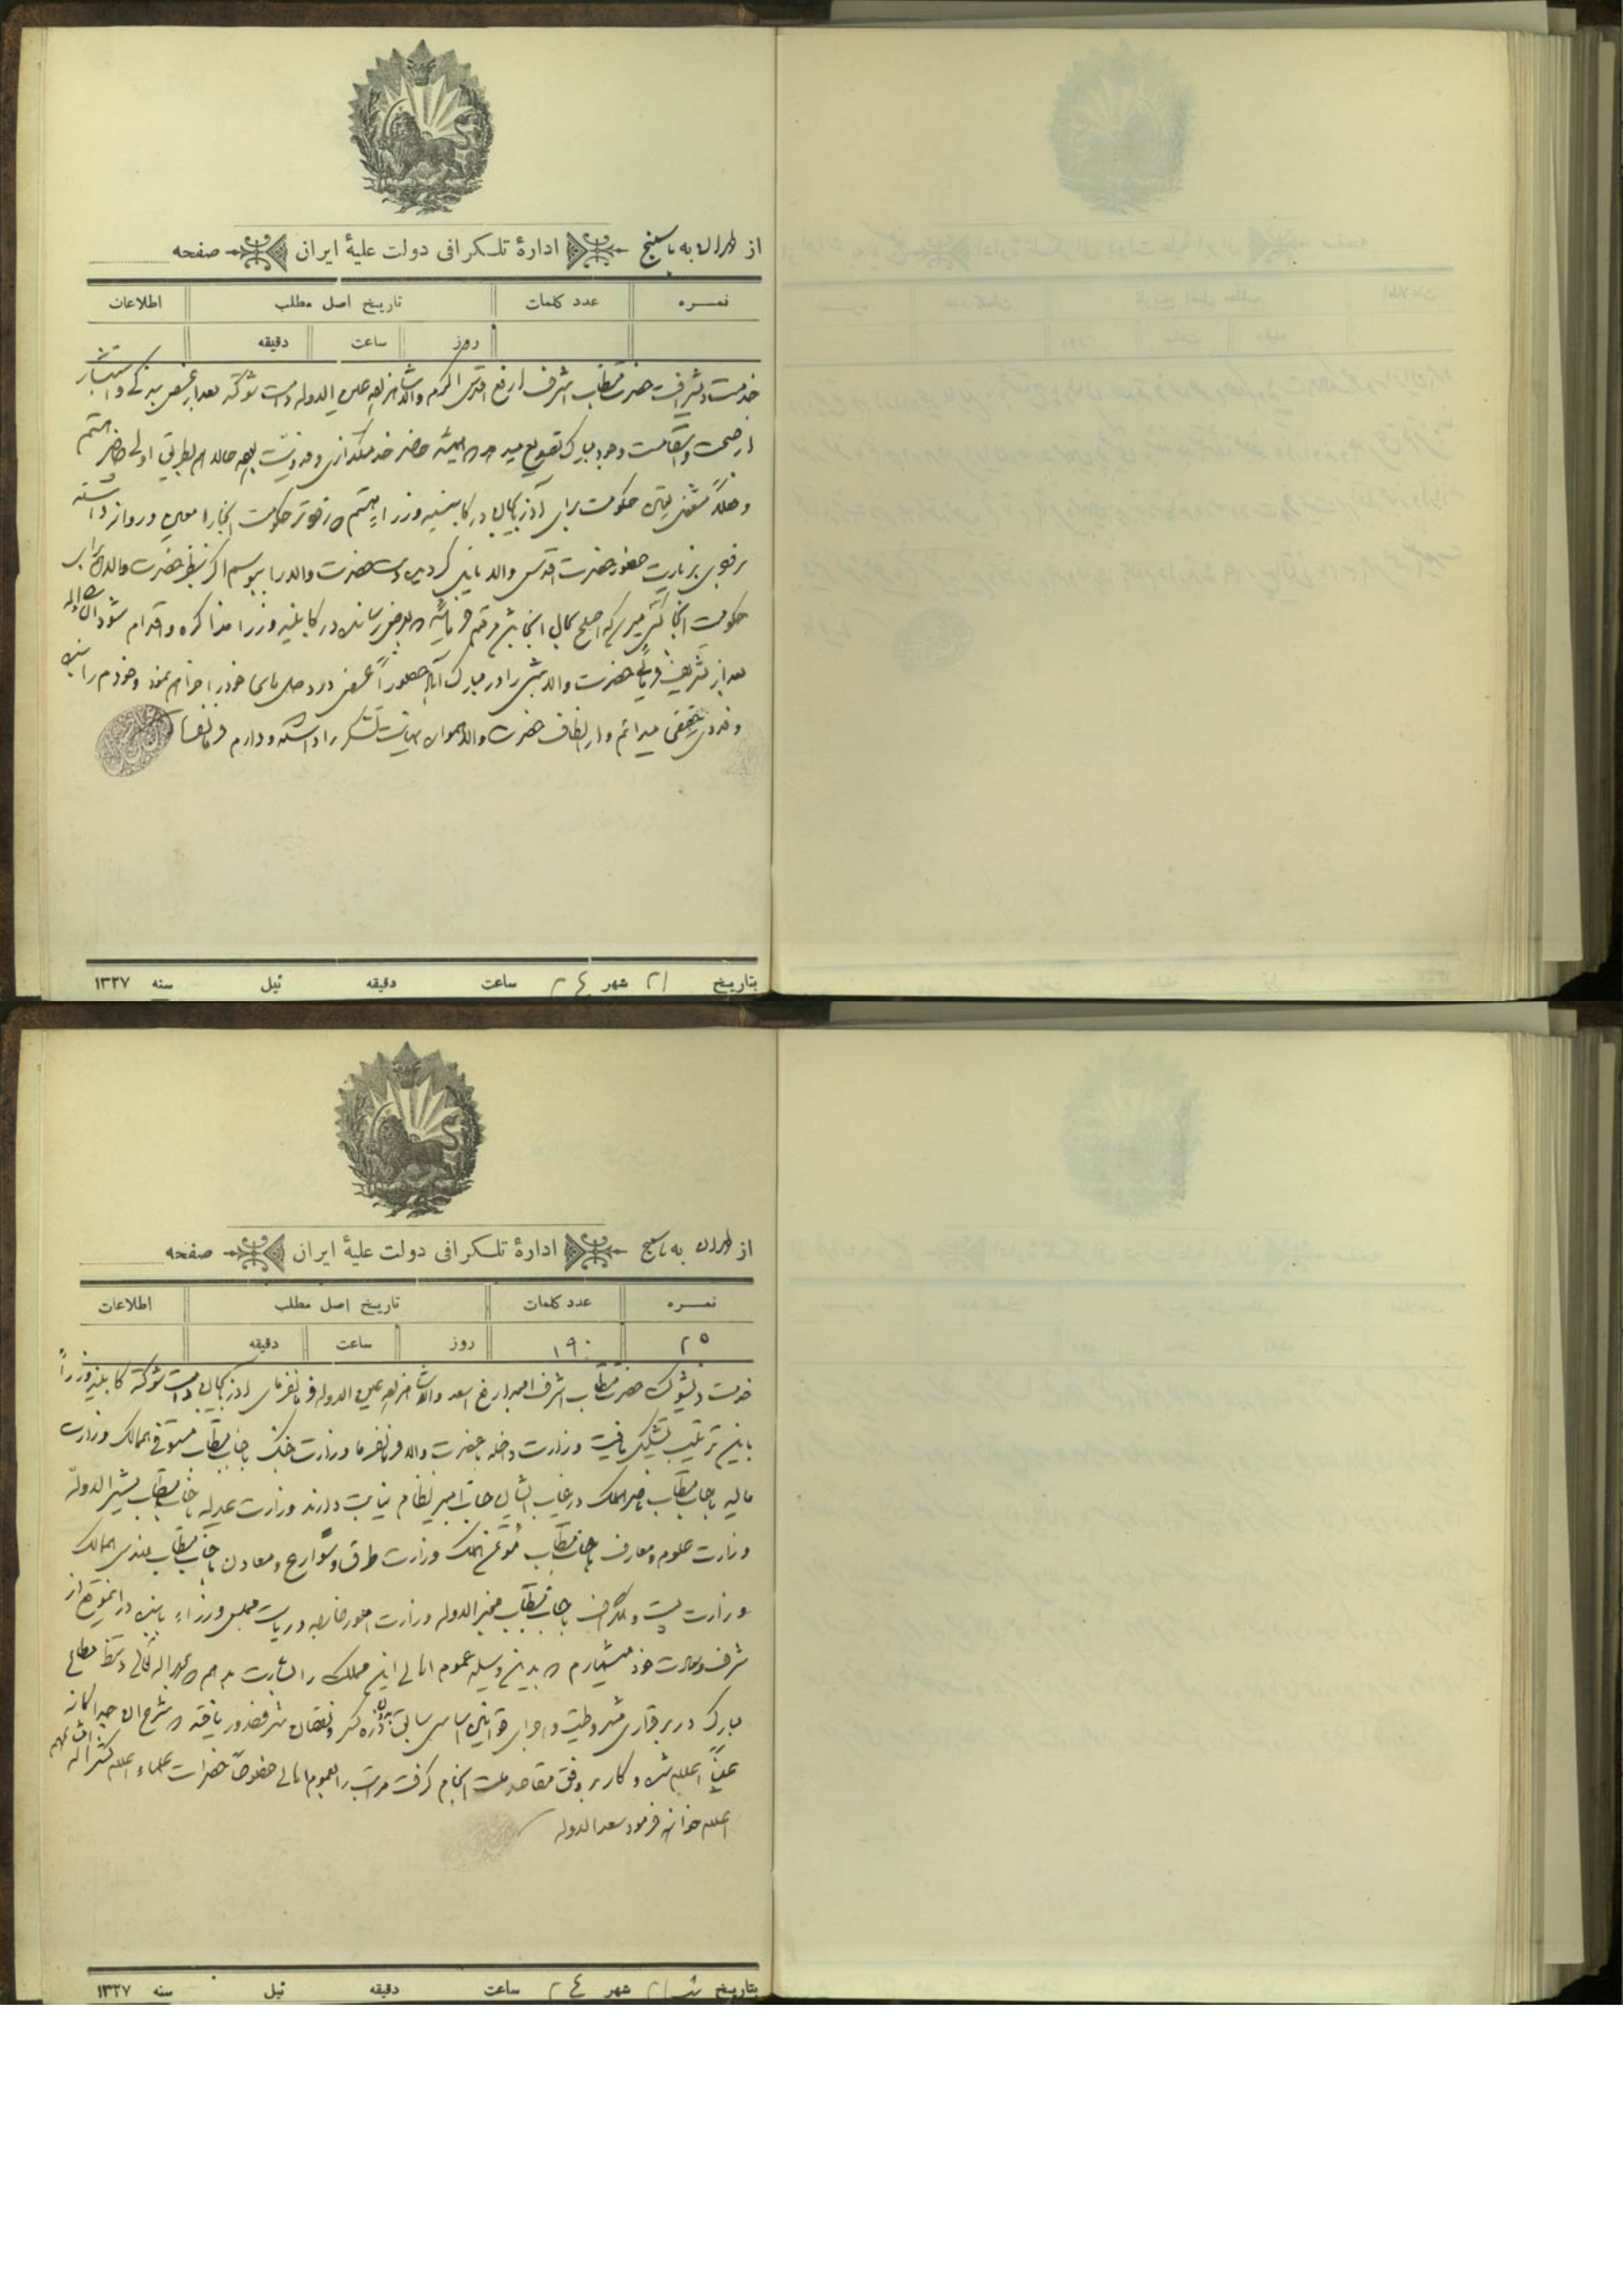 از طهران به باسمنج ادارهٔ تلگرافی دولت علیهٔ ایران صفحه
نمره عدد کلمات تاریخ اصل مطلب اطلاعات
روز ساعت دقیقه
خدمت حضرت مستطاب اشرف ارفع اقدس اکرم والا شاهزاده عین الدوله دامت شوکته بعد از عرض بندگی و استبشار
از صحت و استقامت وجود مبارک تصدیع میدهد همیشه حاضر خدمتگذاری و فدویت بوده حالا هم بطریق اولی حاضر هستم
و فعلا مشغول تعیین حکومت برای آذربایجان در کابینه وزرا هستم که زودتر حکومت آنجا را معین و روانه داشته
بزیارت حضور حضرت اقدس والا نایل گردیده دست حضرت والا را ببوسم اگر بنظر حضرت والا برای
حکومت آنجا کسی میرسد که اصلح بحال آنجا باشد مرقوم فرمائید که بعرض رسانده در کابینه وزرا مذاکره و اقدام شود ان شاء الله
بعد از تشریف فرمائی حضرت والا شرایط مبارک حضوراً عرض درد دل های خود را خواهم نمود و خودم را بنده
و فدوی حقیقی میدانم و از الطاف حضرت والا همواره نهایت تشکر را داشته و دارم فرمانفرما
بتاریخ ۲۱ شهر ع ۲ ساعت دقیقه ئیل سنه ۱۳۲۷
از طهران به باسمنج ادارهٔ تلگرافی دولت علیهٔ ایران صفحه
نمره عدد کلمات تاریخ اصل مطلب اطلاعات
۲۵ ۱۹۰ روز ساعت دقیقه
خدمت حضرت مستطاب اشرف امجد ارفع اسعد والا شاهزاده عین الدوله فرمانفرمای آذربایجان دامت شوکته کابینه وزرا
باین ترتیب تشکیل یافت وزارت داخله با حضرت والا فرمانفرما وزارت جنگ با جناب مستطاب مستوفی الممالک وزارت
مالیه با جناب مستطاب ناصرالملک در غیاب ایشان جناب امیر نظام نیابت دارند وزارت عدلیه با جناب مستطاب مشیرالدوله
وزارت علوم و معارف با جناب مستطاب مؤتمن الملک وزارت طرق و شوارع و معادن با جناب مستطاب مهندس الممالک
وزارت پست و تلگراف با جناب مستطاب مخبرالدوله وزارت امور خارجه و ریاست مجلس وزراء با بنده در این موقع از
شرف و سعادت خود میشمارم که بدین وسیله عموم اهالی این مملکت را بشارت بدهم که بحمدالله تعالی دستخط مطاع
مبارک در برقراری مشروطیت و اجرای قوانین اساسی سابق بدون ذره کسر و نقصان شرف صدور یافته که شرح آن جداگانه
عیناً اعلام شده و کار بر وفق مقاصد ملت انجام گرفت مراتب را بعموم اهالی خصوصاً حضرات علماء اعلام کثر الله امثالهم
اعلام خواهند فرمود سعدالدوله
بتاریخ ۲۱ شهر ع ۲ ساعت دقیقه ئیل سنه ۱۳۲۷